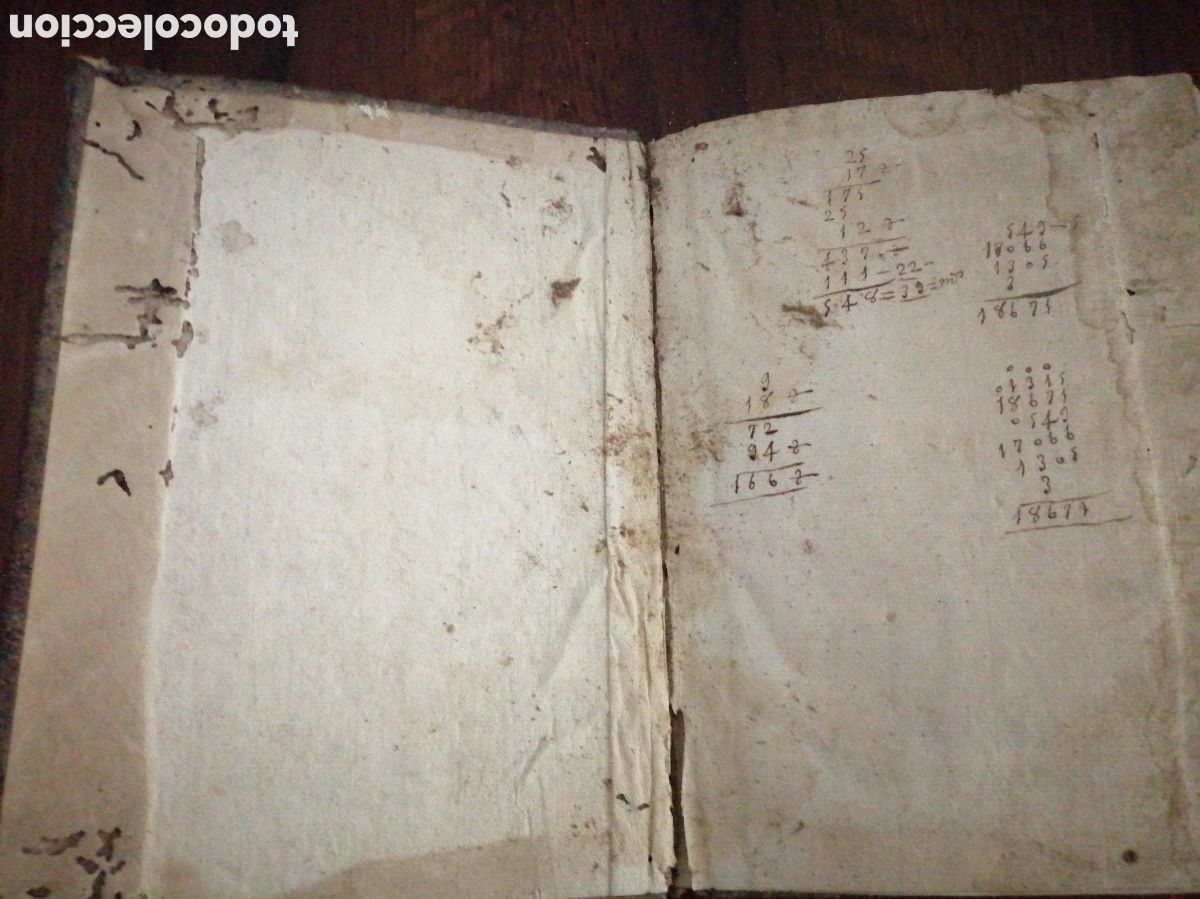 todocoleccion
25
17
175
25
12
437
111-22-
548=39=
549-5
18066
1305
3
18671
9
18
72
94
166
000
01315
18671
0549
17066
1305
3
18671